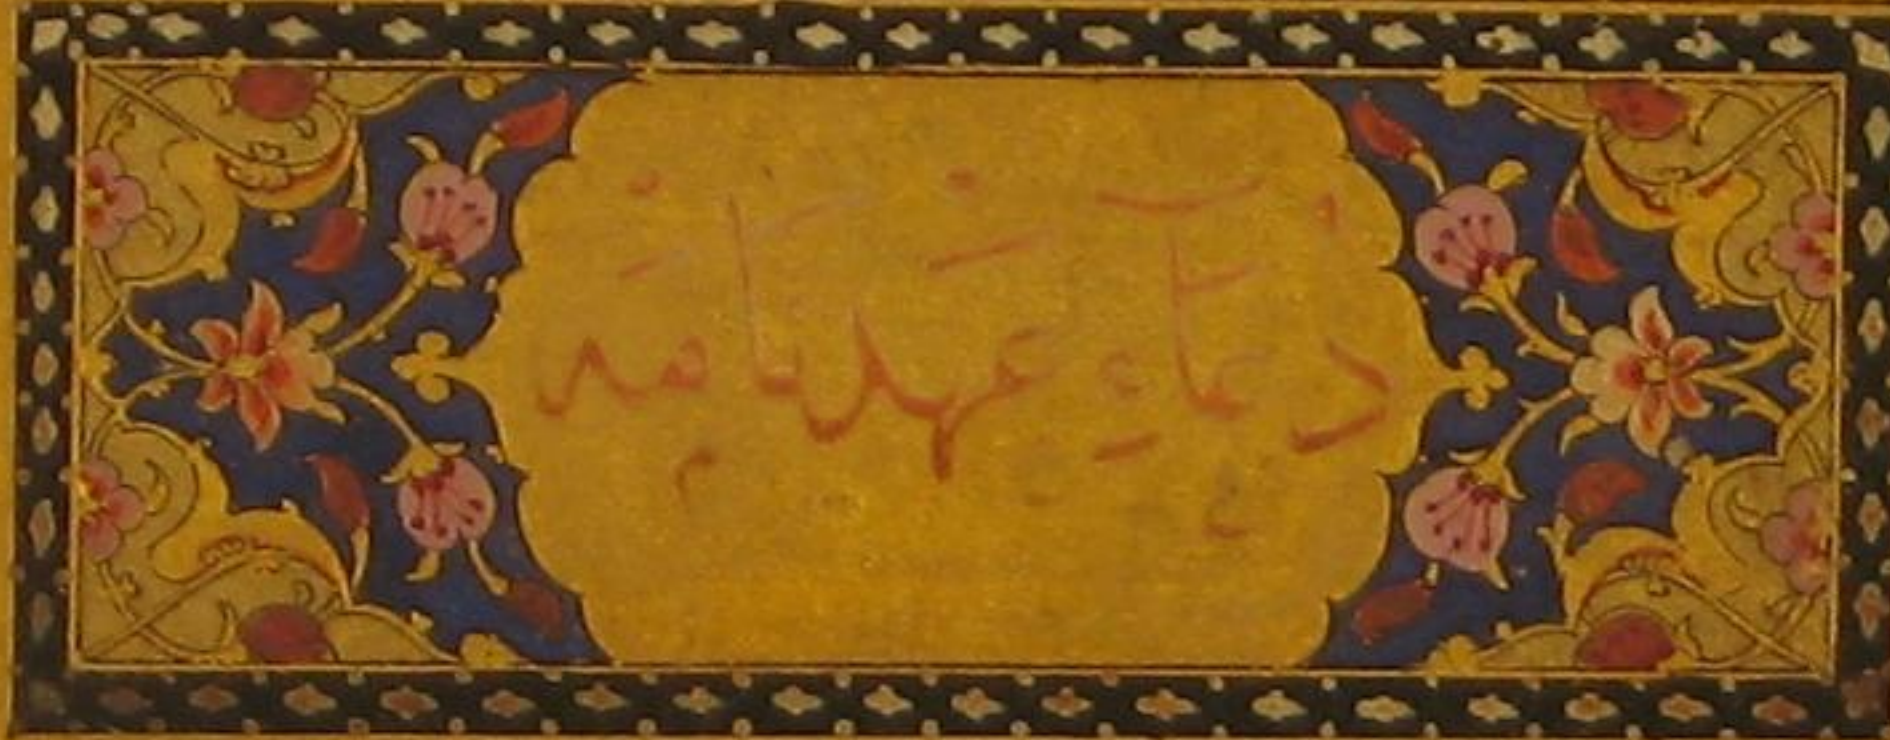 دُعَآءِ عَهْدنَامَهْ